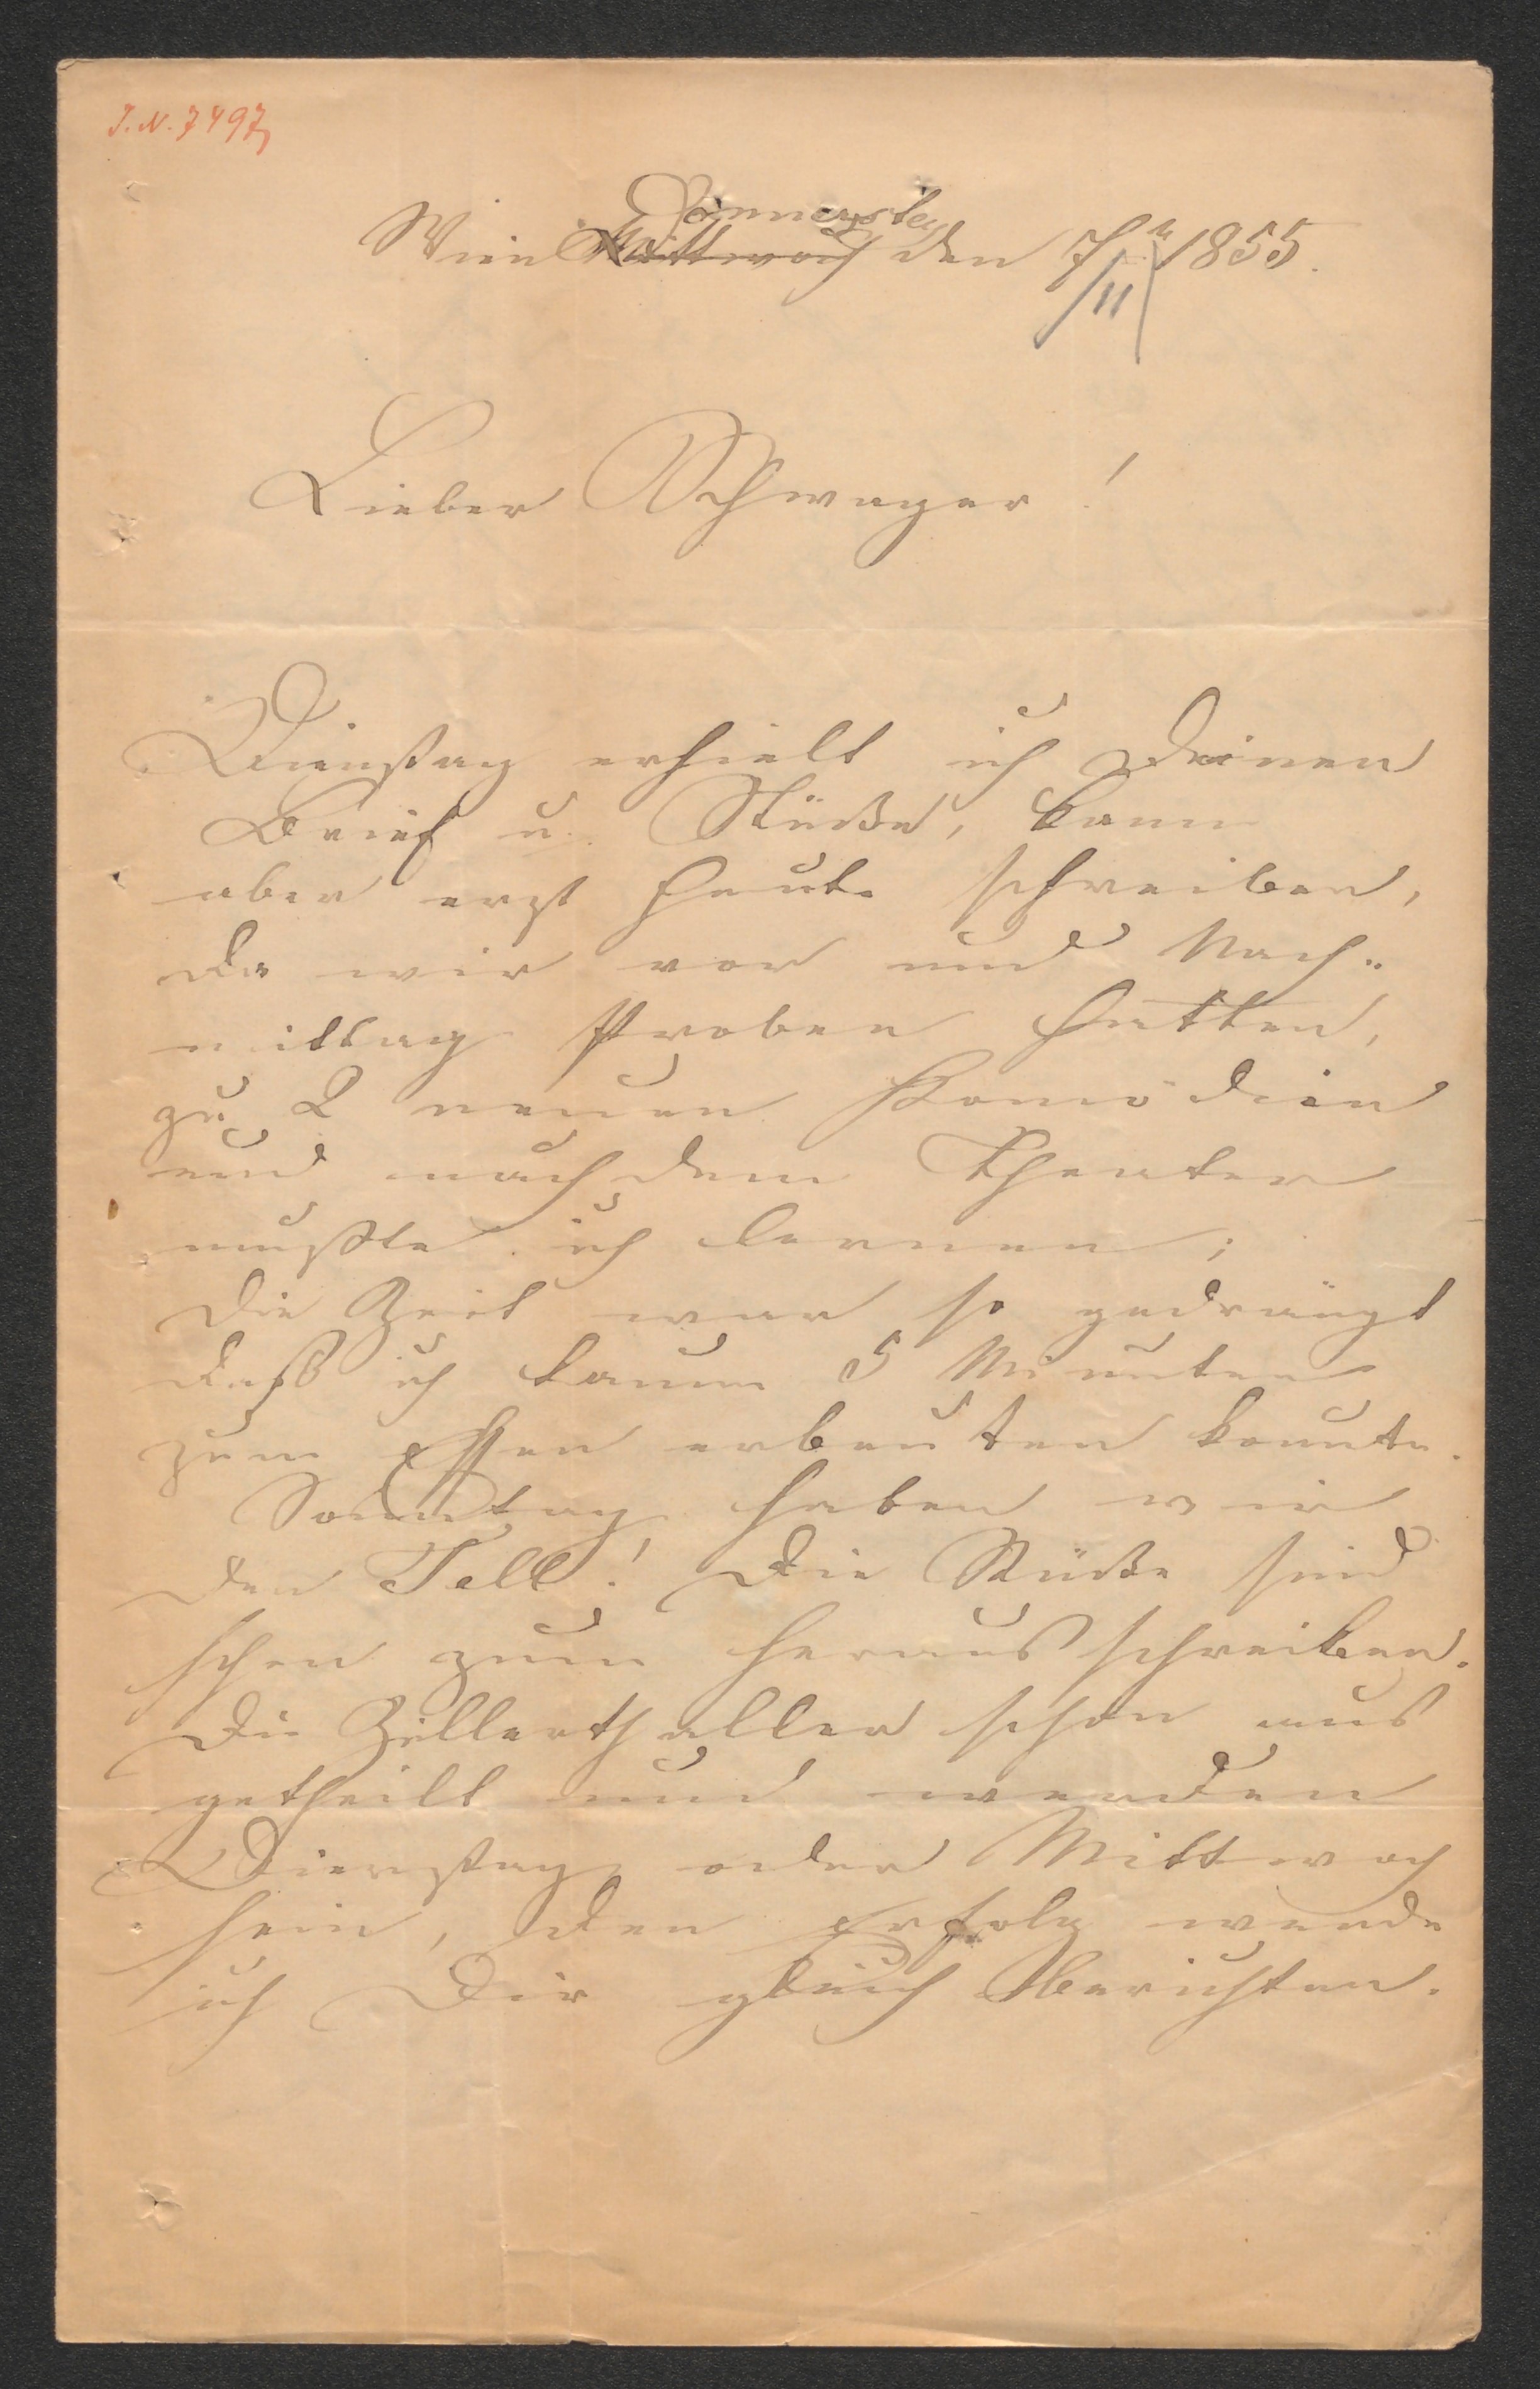 I.N. 7497
Donnerstag
Wien Mittwoch den 7t 1855.
/11
Lieber Schwager!
Dienstag erhielt ich Deinen
Brief u. Stücke, kann
aber erst heute schreiben,
da wir vor und Nach-
mittag Proben hatten,
zu 2 neuen Komödien
und nach dem Theater
mußte ich lernen;
die Zeit war so gedrängt
daß ich kaum 5 Minuten
zum Essen erbeuten konnte.
Sonntag haben wir
den Tell! Die Stücke sind
schon zum herausschreiben.
Die Zillerthaller schon aus
getheilt und werden
Dienstag oder Mittwoch
sein, den Erfolg werde
ich Dir gleich Berichten.